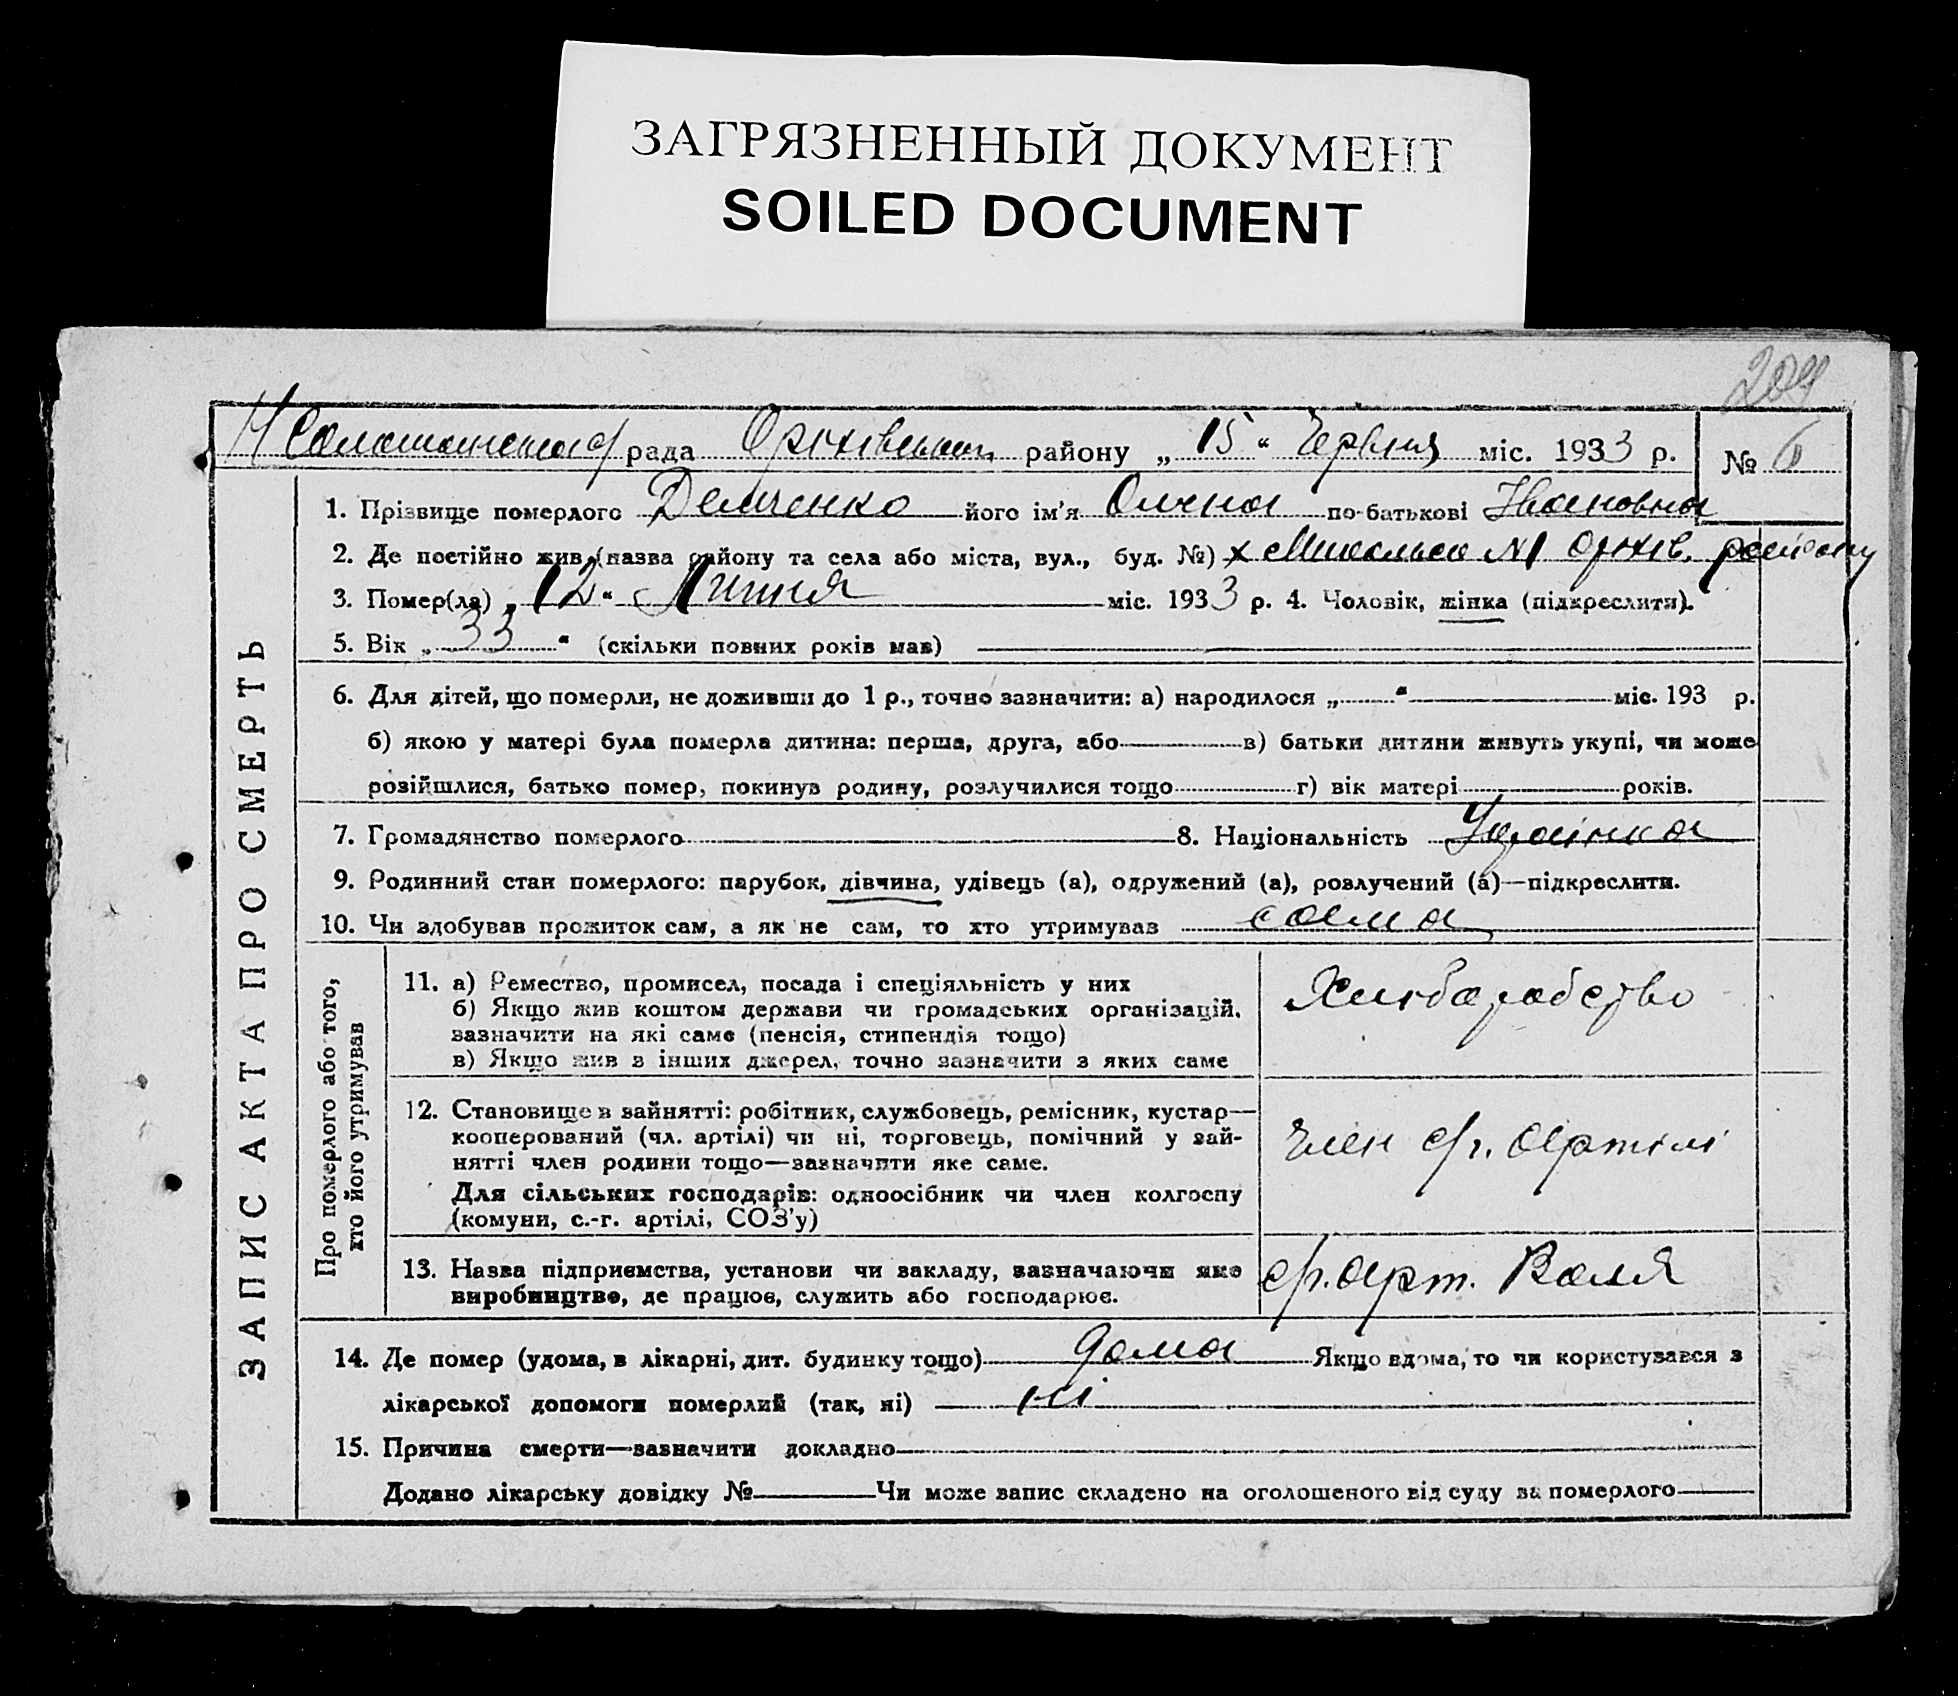 ЗАГРЯЗНЕННЫЙ ДОКУМЕНТ
SOILED DOCUMENT
209
рада Оріхівськ. району „ 15 “ Червня міс. 1933 р. № 6
ЗАПИС АКТА ПРО СМЕРТЬ
1. Прізвище померлого Демченко його ім'я по-батькові Івановна
2. Де постійно жив (назва району та села або міста, вул., буд. №) х №1 Оріхів. району
3. Помер(ла) „ 12 “ Липня міс. 1933 р. 4. Чоловік, жінка (підкреслити).
5. Вік „ 33 “ (скільки повних років мав)
6. Для дітей, що померли, не доживши до 1 р., точно зазначити: а) народилося „ “ міс. 193 р.
б) якою у матері була померла дитина: перша, друга, або в) батьки дитини живуть укупі, чи може
розійшлися, батько помер, покинув родину, розлучилися тощо г) вік матері років.
7. Громадянство померлого 8. Національність Українка
9. Родинний стан померлого: парубок, дівчина, удівець (а), одружений (а), розлучений (а)—підкреслити.
10. Чи здобував прожиток сам, а як не сам, то хто утримував сама
Про померлого або того,
хто його утримував
11. а) Ремество, промисел, посада і спеціяльність у них
б) Якщо жив коштом держави чи громадських організацій,
зазначити на які саме (пенсія, стипендія тощо)
в) Якщо жив з інших джерел, точно зазначити з яких саме
Хліборобство
12. Становище в зайнятті: робітник, службовець, ремісник, кустар—
кооперований (чл. артілі) чи ні, торговець, помічний у зай-
нятті член родини тощо—зазначити яке саме.
Для сільських господарів: одноосібник чи член колгоспу
(комуни, с.-г. артілі, СОЗ'у)
Член с/г. артілі
13. Назва підприємства, установи чи закладу, зазначаючи яке
виробництво, де працює, служить або господарює.
с/г. арт. Воля
14. Де помер (удома, в лікарні, дит. будинку тощо) дома Якщо вдома, то чи користувався з
лікарської допомоги померлий (так, ні) ні
15. Причина смерти—зазначити докладно
Додано лікарську довідку № Чи може запис складено на оголошеного від суду за померлого